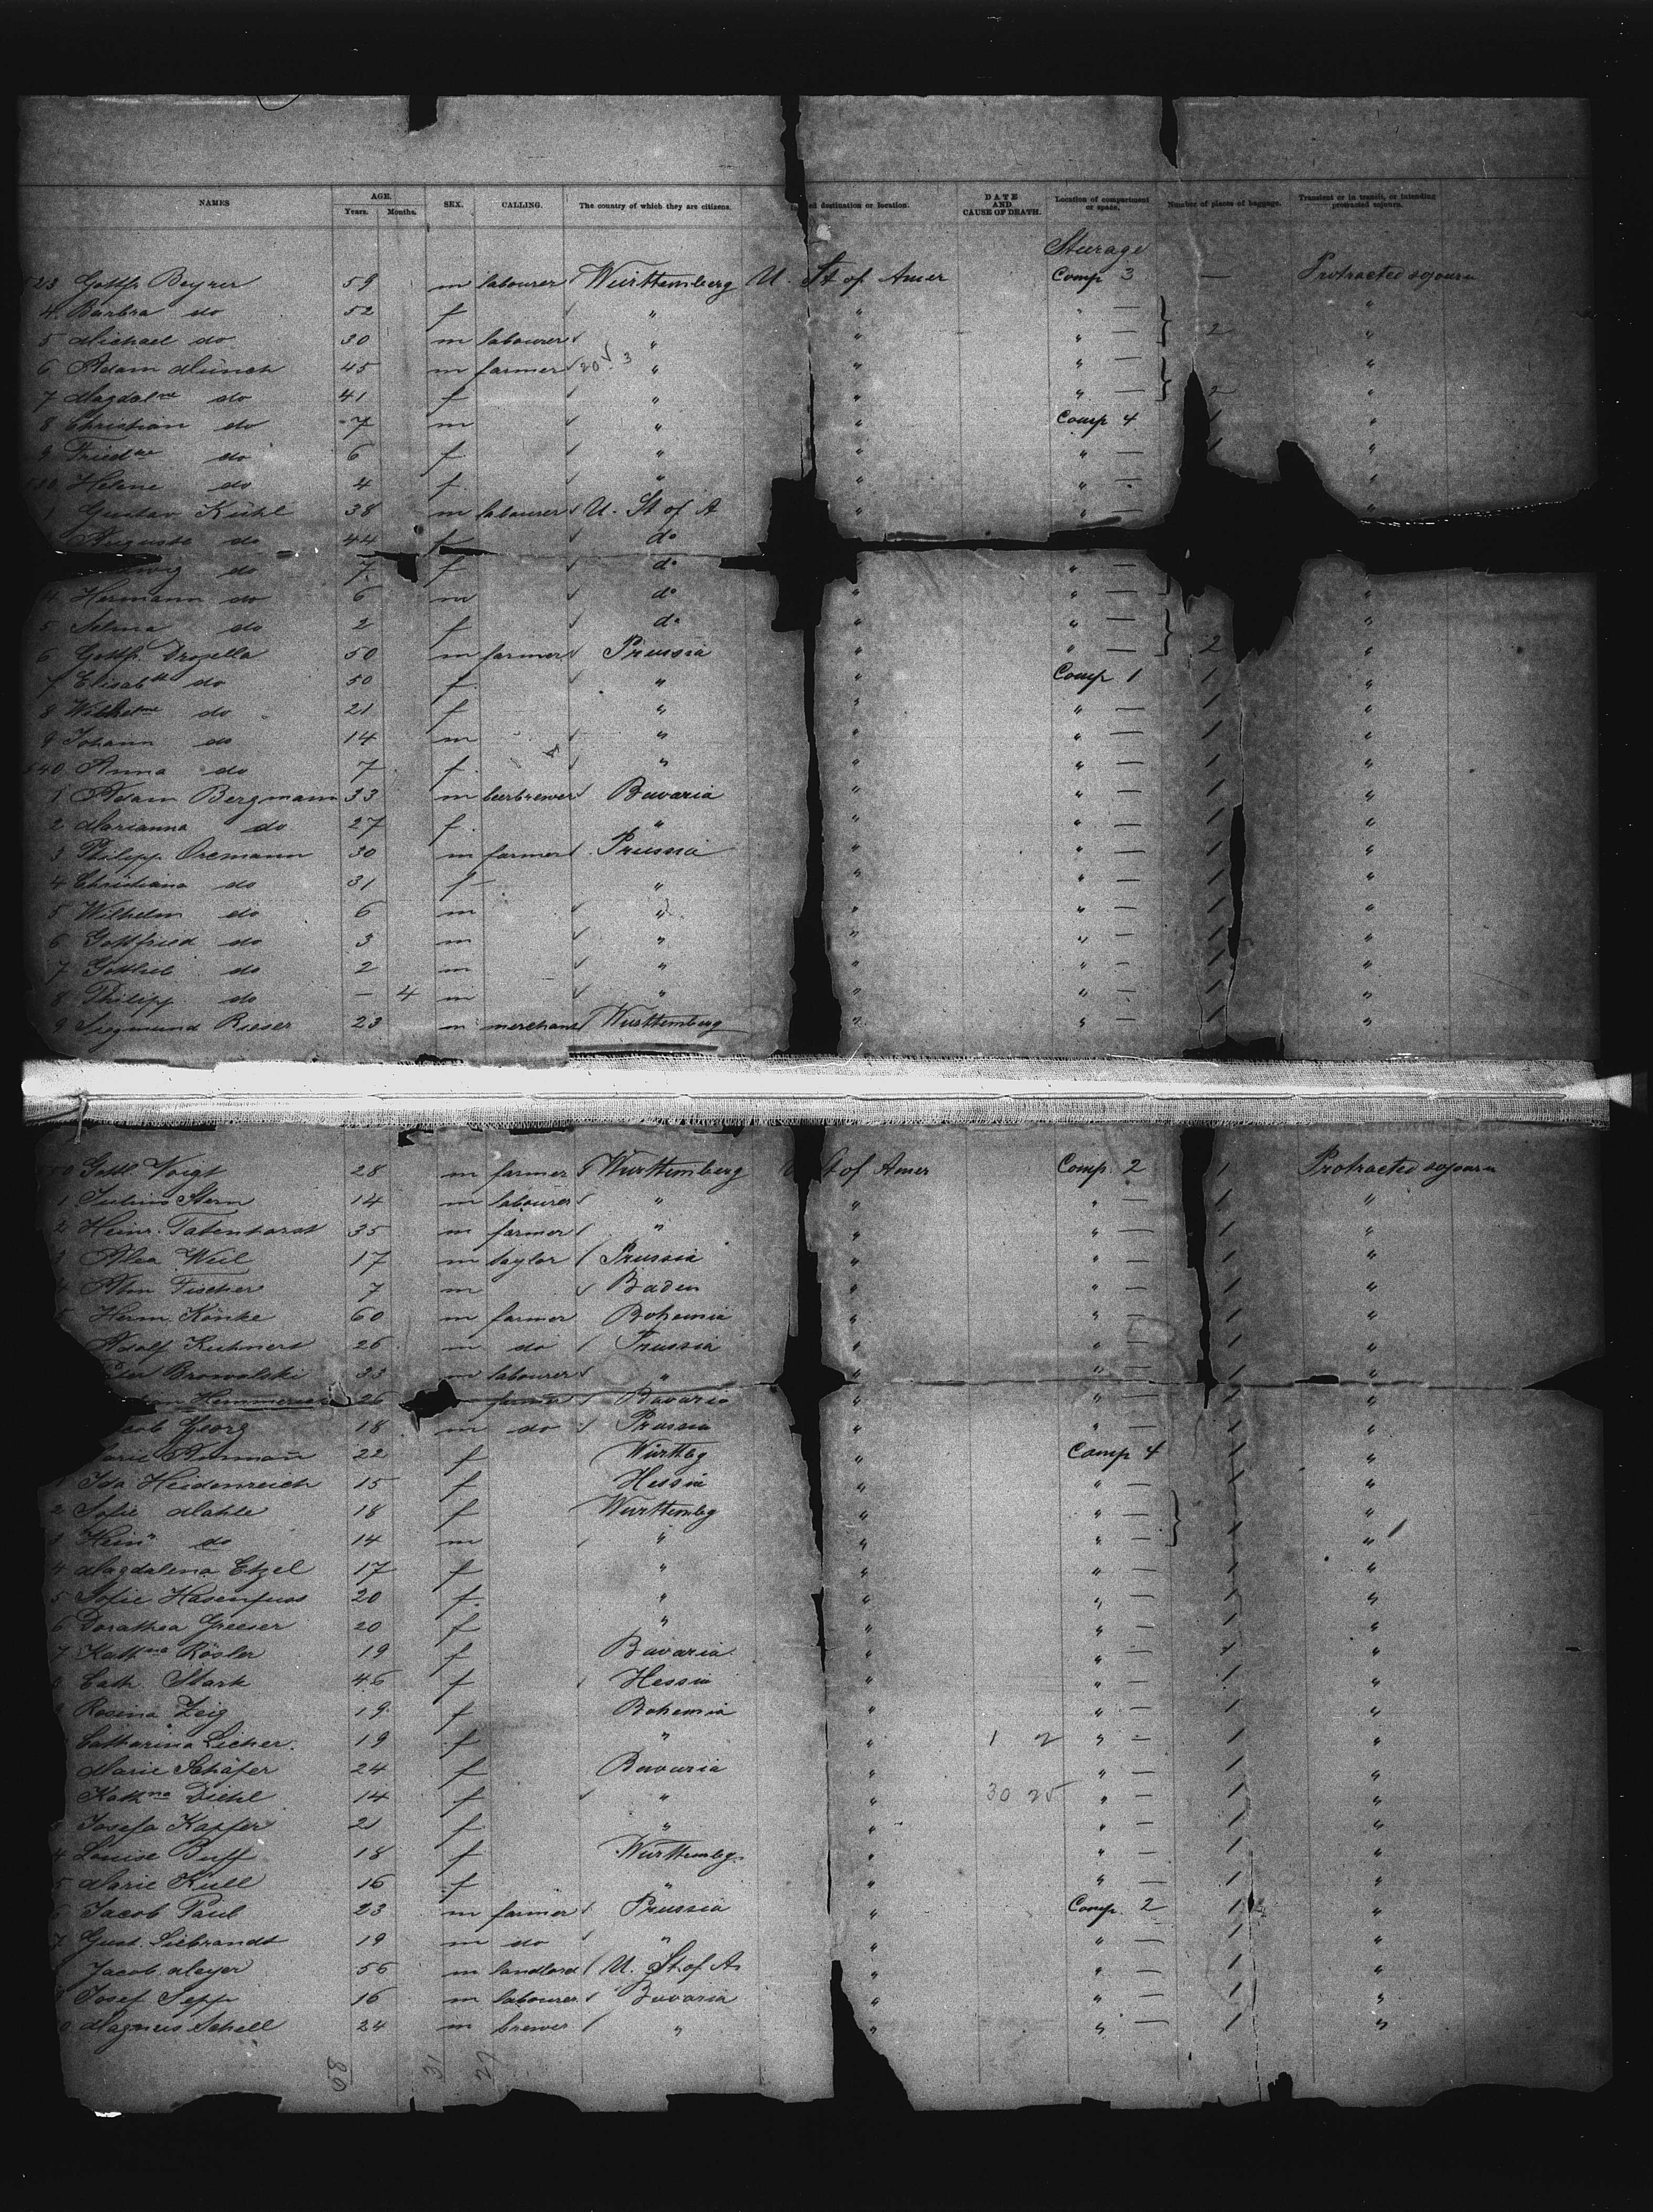 NAMES AGE. Years. Months. SEX. CALLING. The country of which they are citizens. destination or location. DATE AND CAUSE OF DEATH. Location of compartment or space. Number of pieces of baggage. Transient or in transit, or intending protracted sojourn.
Steerage
523 Gottfr. Beyrer 59 m labourer Württemberg U. St of Amer Comp 3 — Protracted sojourn
4 Barbra do 52 f " " " — "
5 Michael do 30 m labourer " " " — 2 "
6 Adam Münch 45 m farmer 20 3 " " " — "
7 Magdalne do 41 f " " " — 2 "
8 Christian do 7 m " " Comp 4 1 "
9 Friedke do 6 f " " " — 1 "
530 Helene do 4 f " " " - "
1 Gustav Kühl 38 m labourer U. St of A " " — "
Auguste do 44 f do
do 7 f do " —
4 Hermann do 6 m do " " — "
5 Selma do 2 f do " " — "
6 Gottfr. Drozella 50 m farmer Prussia " " — 2 "
7 Elisabth do 50 f " " Comp 1 1 "
8 Wilhelme do 21 f " " " — 1 "
9 Johann do 14 m " " " — 1 "
540 Anna do 7 f " " " — 1 "
1 Adam Bergmann 33 m beerbrewer Bavaria " " — 1 "
2 Marianna do 27 f " " " — 1 "
3 Philipp Oremann 30 m farmer Prussia " " — 1 "
4 Christiana do 31 f " " " — 1 "
5 Wilhelm do 6 m " " " — 1 "
6 Gottfried do 3 m " " " — 1 "
7 Gottlieb do 2 m " " " — 1 "
8 Philipp do — 4 m " " " — 1 "
9 Siegmund Rieser 23 m merchant Württemberg " " — 1 "
550 Gottl. Voigt 28 m farmer Württemberg U St of Amer Comp. 2 1 Protracted sojourn
1 Julius Stern 14 m labourer " " " — 1 "
2 Heinr. Tabenhorst 35 m farmer " " " — 1 "
3 Alea Weil 17 m taylor Prussia " " — 1 "
4 Fischer 7 m Baden " " — 1 "
5 Herm. Könke 60 m farmer Bohemia " " — 1 "
Adolf Kuhnert 26 m do Prussia " " — 1 "
Browalski 33 m labourer " " " — 1 "
26 farmer Bavaria " " — 1 "
Georg 18 m do Prussia " " — 1 "
22 f Württbg " Comp 4 1 "
1 Ida Heidenreich 15 f Hessia " " — 1 "
2 Sofie Mahle 18 f Württembg " " — 1 "
3 Heinr do 14 m " " " — 1 "
4 Magdalena Etzel 17 f " " " — 1 "
5 Sofie Hasenfuss 20 f " " " — 1 "
6 Dorathea Greeser 20 f " " " — 1 "
7 Kathna Rösler 19 f Bavaria " " — 1 "
8 Cath. Stark 46 f Hessia " " — 1 "
9 Rosina Zeig 19 f Bohemia " " — 1 "
Catharina Licher. 19 f " " 1 2 " — 1 "
Marie Schäfer 24 f Bavaria " " — 1 "
Kathna Diehl 14 f " " 30 25 " — 1 "
3 Josefa Kapfer 21 f " " " — 1 "
4 Louise Buff 18 f Württembg. " " — 1 "
5 Marie Küll 16 f " " " — 1 "
6 Jacob Paul 23 m farmer Prussia " Comp. 2 1 "
7 Gust. Liebrandt 19 m do " " " — 1 "
Jacob Meyer 56 m landlord U. St of A " " — 1 "
Josef Sepp 16 m labourer Bavaria " " — 1 "
0 Magnus Schell 24 m brewer " " " — 1 "
31 27